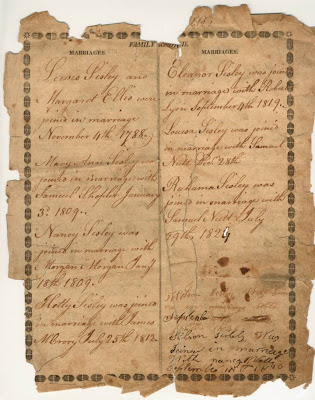 FAMILY RECORD.
MARRIAGES.
Sisley and
Margaret Ellis were
joined in marriage
November 4th, 1788.
Mary Ann Sisley was
joined in marriage with
Samuel January
3d 1809.
Nancy Sisley was
joined in marriage with
Morgan Morgan Jany
18th 1809.
Kitty Sisley was joined
in marriage with James
July 25th 1812
MARRIAGES.
Eleanor Sisley was join
in marriage with Robert
Lyon September 4th 1819.
Louisa Sisley was joined
in marriage with Samuel
28th
Ruhama Sisley was
joined in marriage with
Samuel Nutt July
29th, 1824
Septembe
was
in marriage
With nancy
September